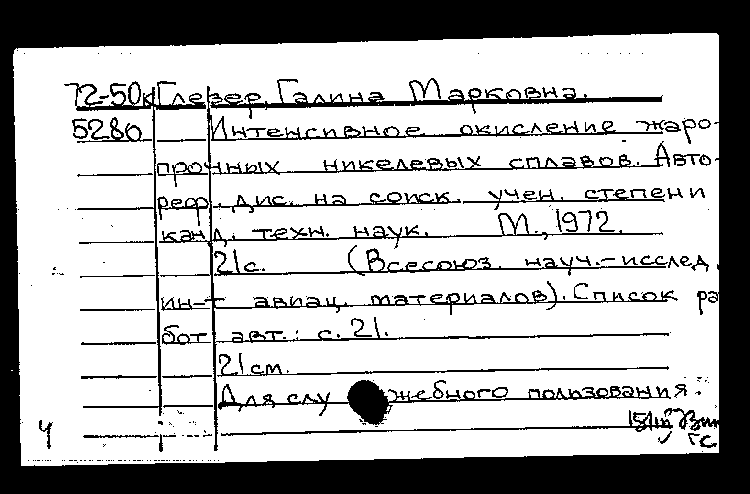 72-50к Глезер, Галина Марковна.
5280 Интенсивное окисление жаро-
прочных никелевых сплавов. Авто-
реф. дис. на соиск. учен. степени
канд. техн. наук. М., 1972.
21с. (Всесоюз. науч.-исслед.
ин-т авиац. материалов). Список ра
бот авт.: с. 21.
21см.
Для служебного пользования.
ч
ГС